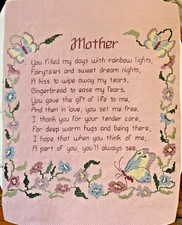 Mother
You filled my days with rainbow lights,
Fairytales and sweet dream nights,
A kiss to wipe away my tears,
Gingerbread to ease my fears,
You gave the gift of life to me,
And then in love, you set me free,
I thank you for your tender care,
For deep warm hugs and being there,
I hope that when you think of me,
A part of you, you'll always see.